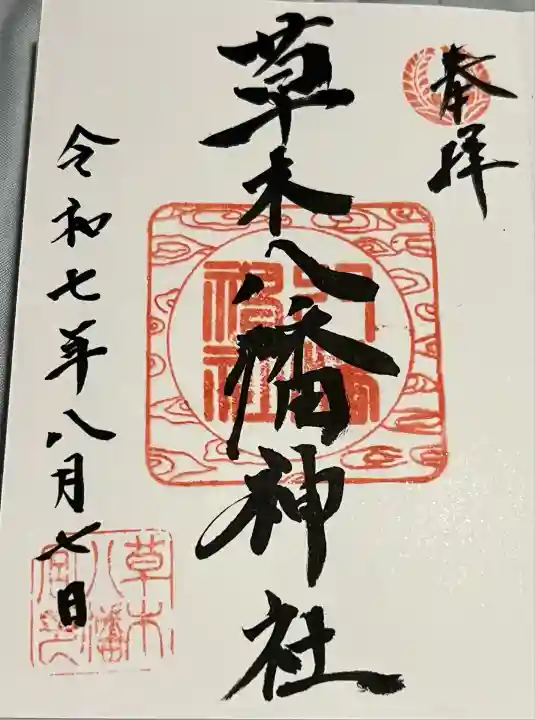 奉拝
草木八幡神社
八幡
神社
令和七年八月七日
草木
八幡
宮印